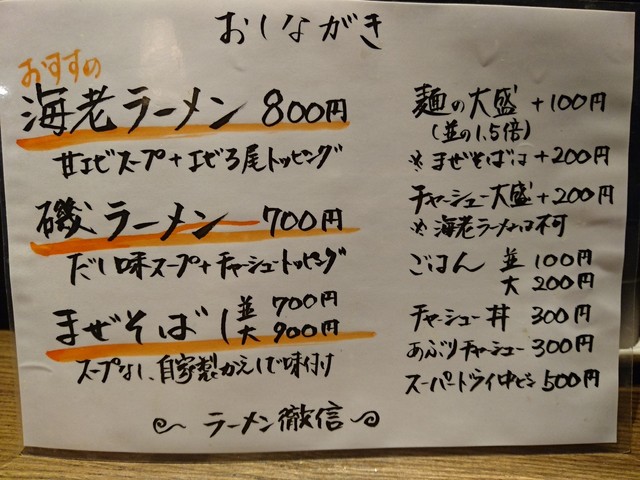 おしながき
おすすめ
海老ラーメン 800円
甘エビスープ+エビ3尾トッピング
磯ラーメン 700円
だし味スープ+チャーシュートッピング
まぜそば 並 700円
大 900円
スープなし、自家製かえしで味付け
麺の大盛 +100円
(並の1.5倍)
※まぜそばは +200円
チャーシュー大盛 +200円
※海老ラーメンは不可
ごはん 並 100円
大 200円
チャーシュー丼 300円
あぶりチャーシュー 300円
スーパードライ中ビン 500円
ラーメン徹信